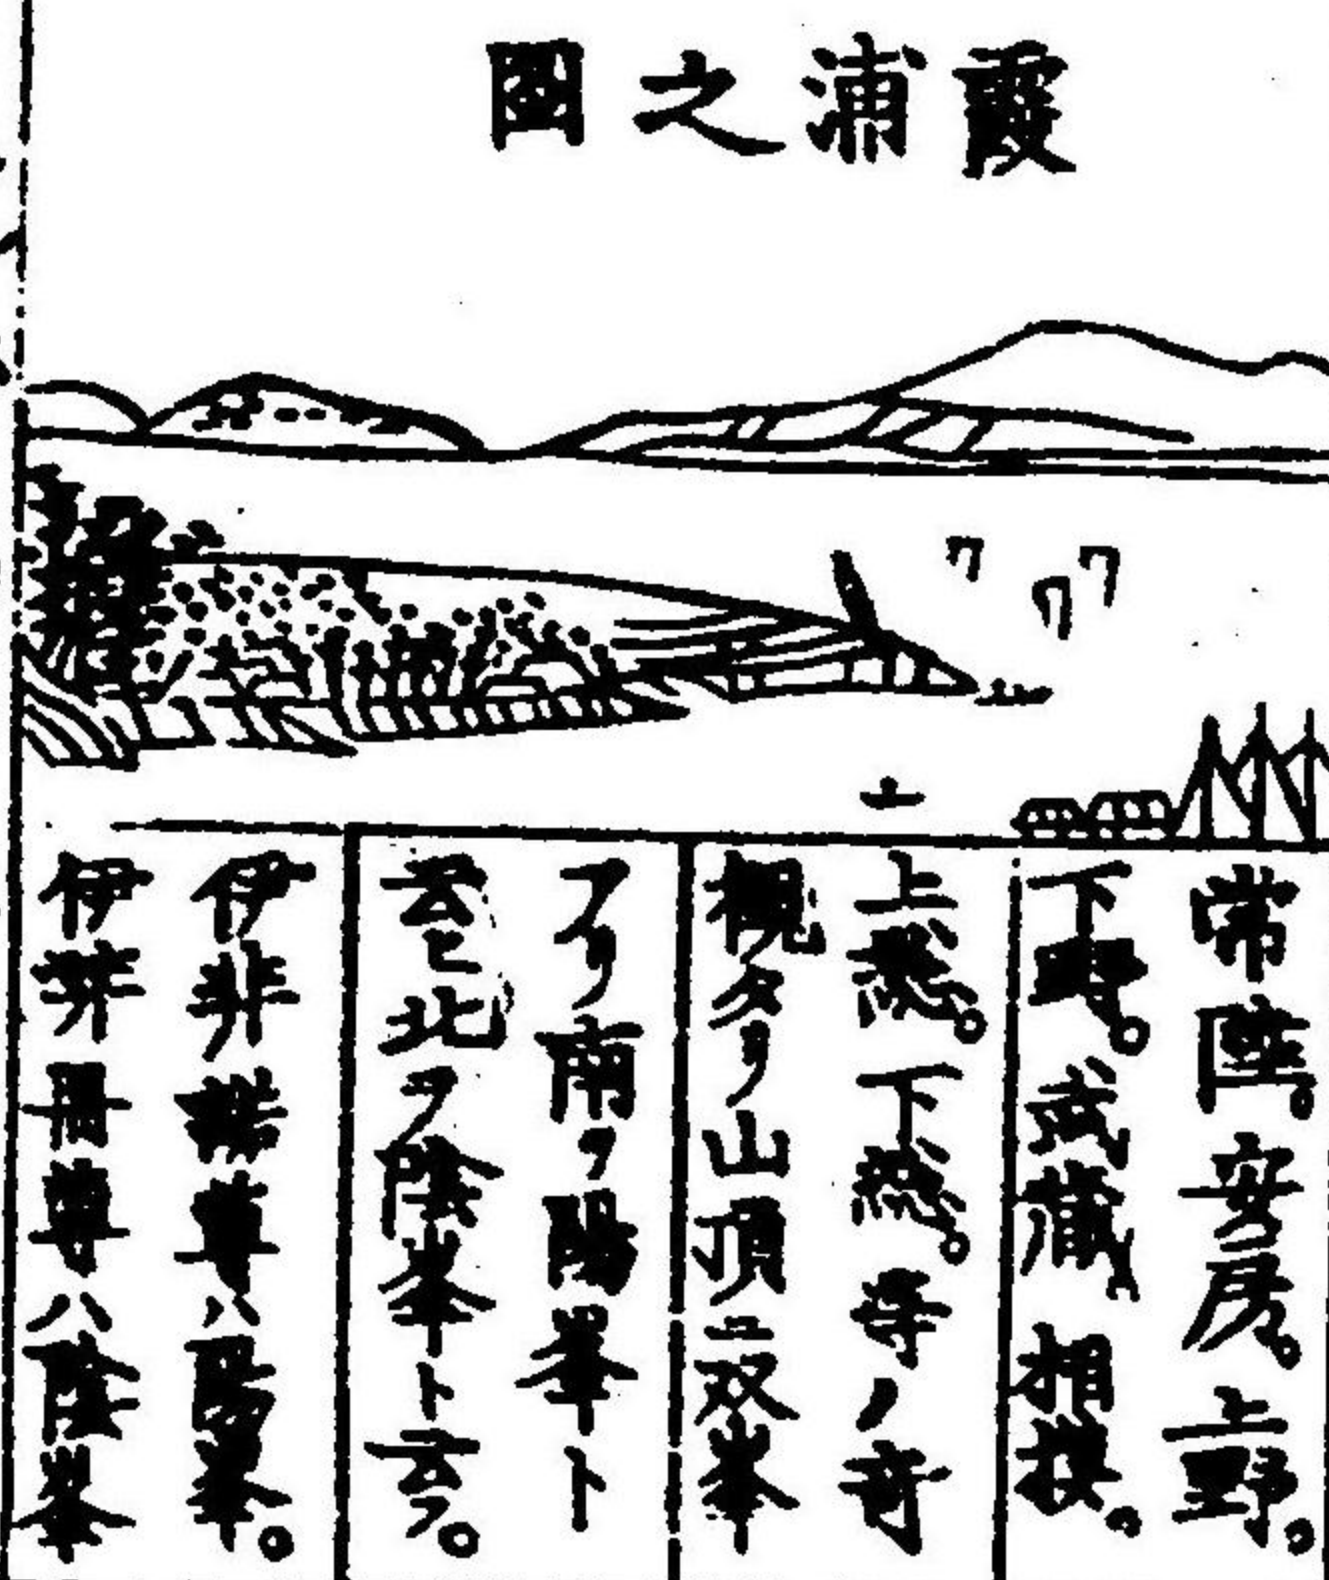 霞浦之圖
常陸。安房。上野。
下野。武藏。相摸。
上総。下総。等ノ奇
観タリ山頂ニ双峯
アリ南ヲ陽峯ト
云ヒ北ヲ陰峯ト云フ。
伊弉諾尊ハ陽峯。
伊弉冊尊ハ陰峯